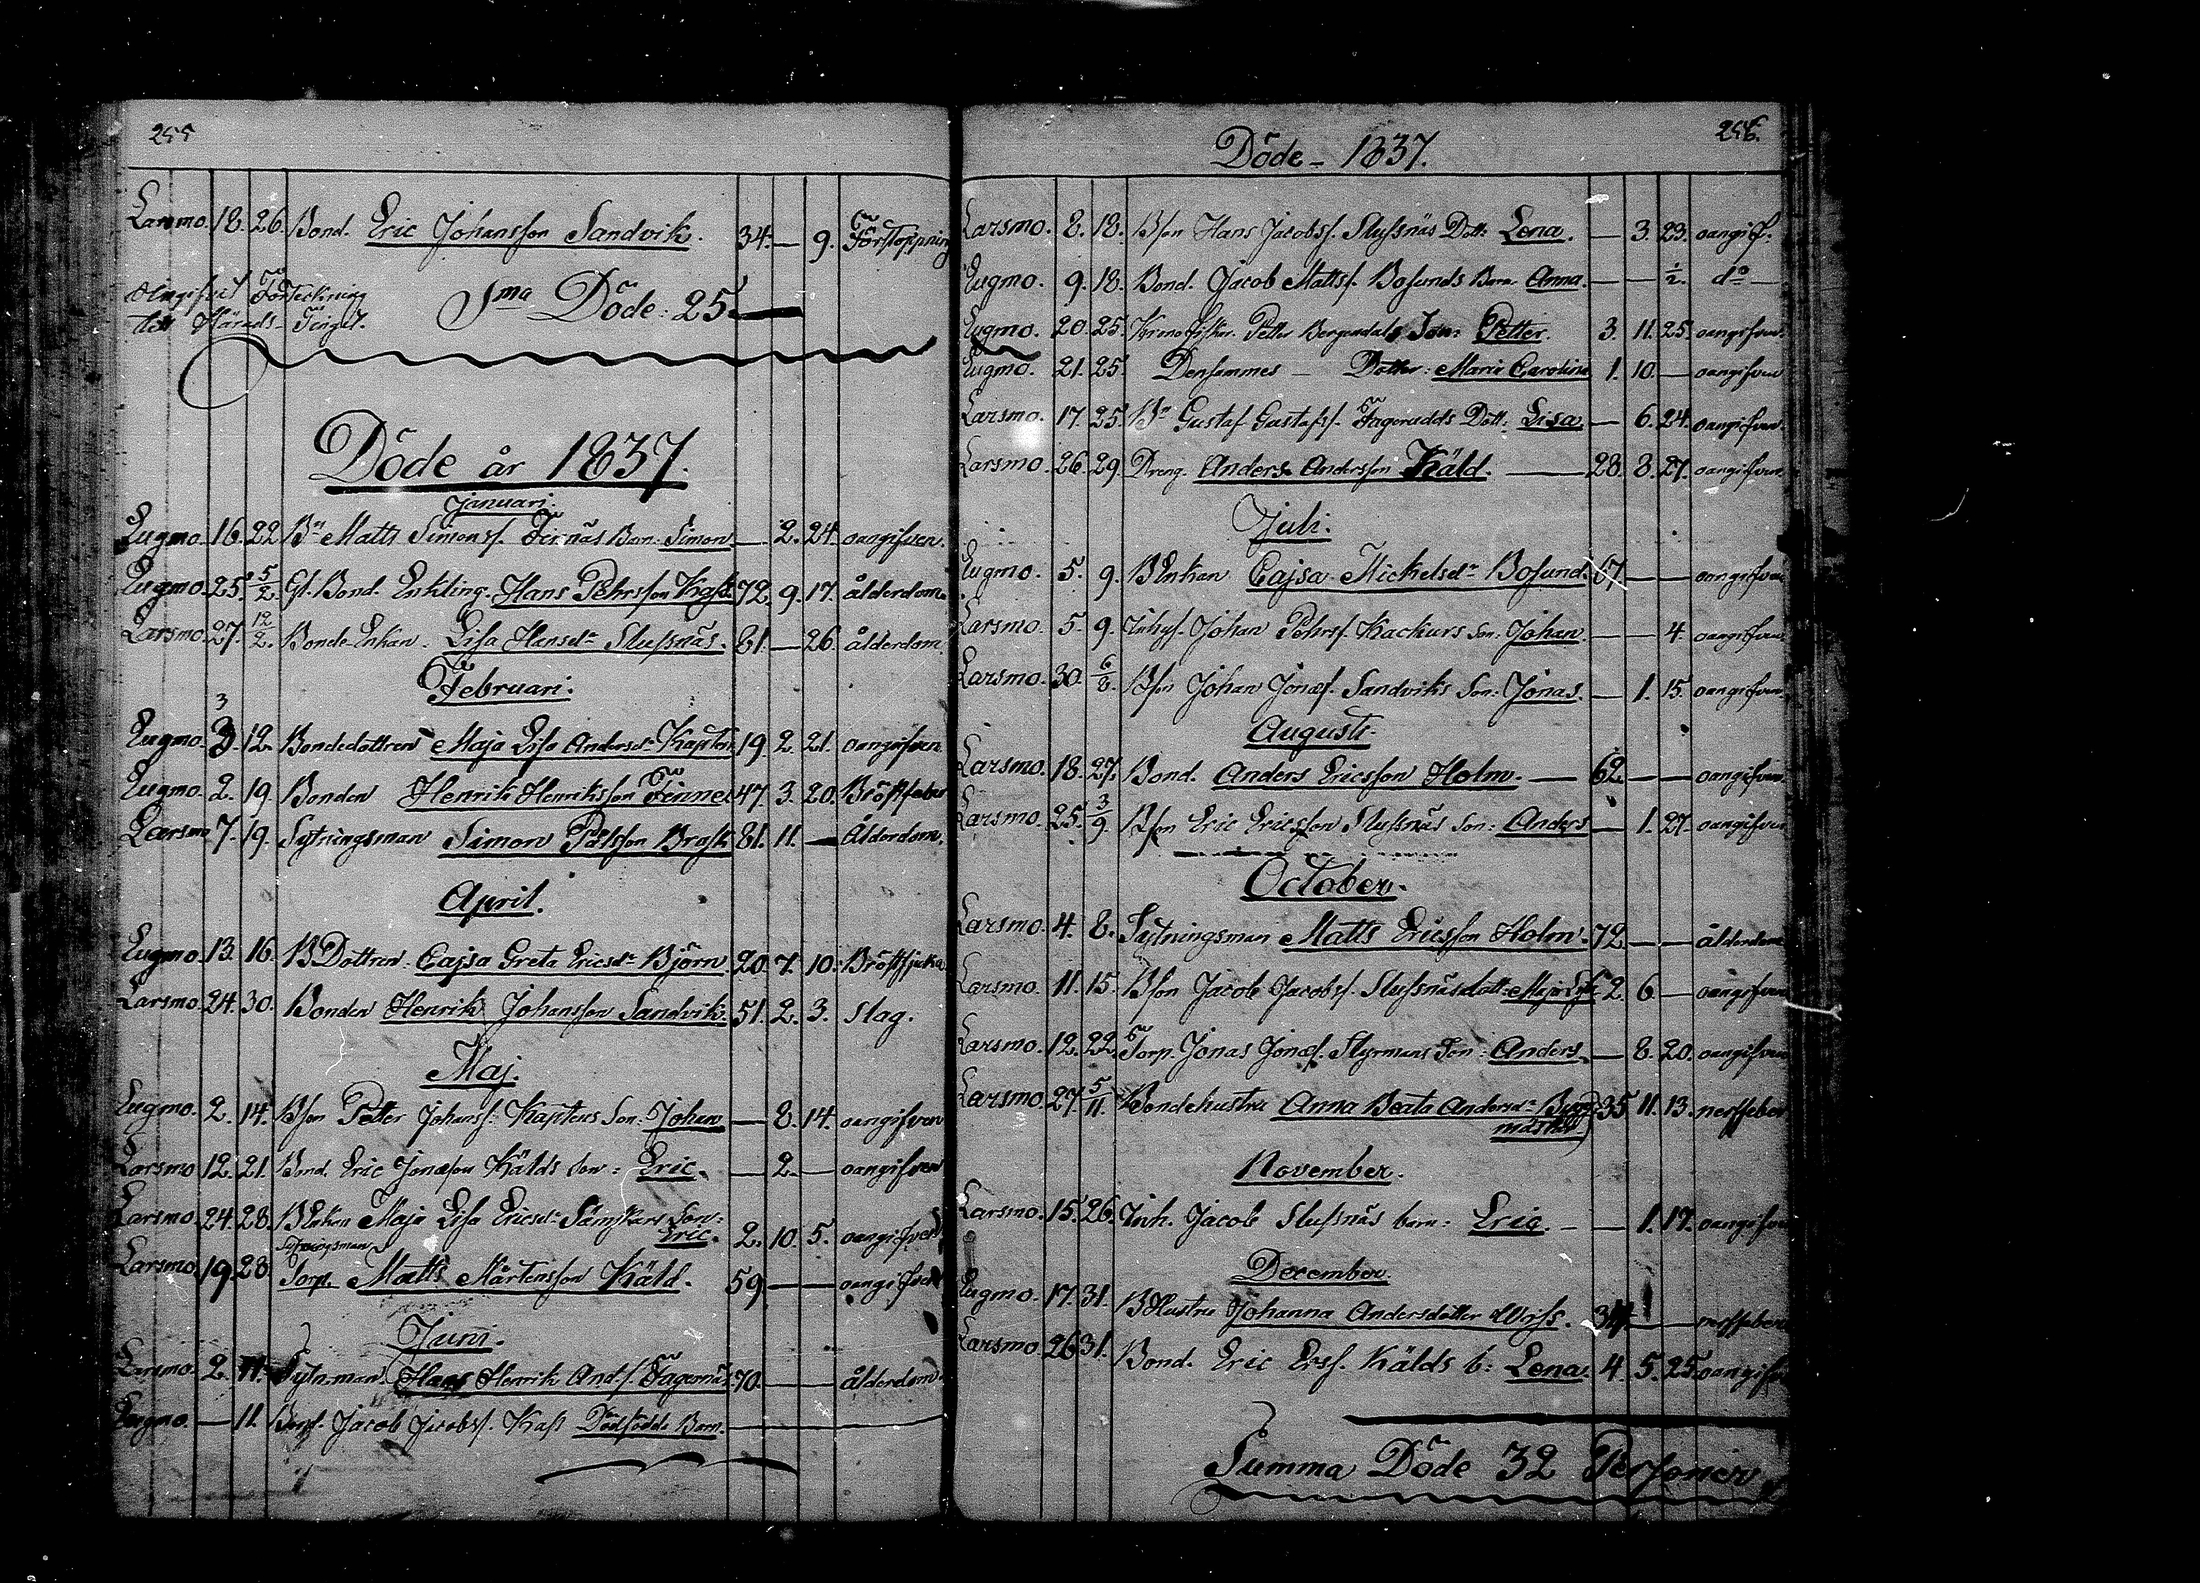 255
Larsmo. 18. 26. Bond. Eric Johansson Sandvik. 34. — 9. Förstoppning
Förteckning
till Härads-Tinget.
Sma Döde: 25.
Döde år 1837.
Januari.
Eugmo. 16. 22 Bn Matts Simonss. Fernäs Barn: Simon — 2. 24. oangifven.
Eugmo. 25. 5/2. Gl. Bond. Enkling. Hans Pehrsson Kass 72. 9. 17. ålderdom.
Larsmo. 27. 12/2. Bonde Enkan. Lisa Hansdr Slussnäs. 81. — 26. ålderdom.
Februari.
3
Eugmo. 3. 12. Bondedottren Maja Lisa Andersdr Kapten 19. 2. 21. oangifven
Eugmo. 2. 19. Bonden Henrik Henriksson Finne 47. 3. 20. Bröstfeber
Larsmo 7. 19. Sytningsman Simon Pålsson Brask 81. 11. — Ålderdom.
April.
Eugmo. 13. 16. BDottren. Cajsa Greta Ericsdr Björn. 20. 7. 10. Bröstsjuka
Larsmo. 24. 30. Bonden Henrik Johansson Sandvik. 51. 2. 3. Slag.
Maj.
Eugmo. 2. 14. Bson Petter Johanss. Kaptens Son: Johan — 8. 14. oangifven
Larsmo 12. 21. Bond. Eric Jonasson Kälds Son: Eric. — 2. — oangifven
Larsmo. 24. 28. BEnkan Maja Lisa Ericsdr Sämskars Son:
Eric. 2. 10. 5. oangifven
Sytningsman
Larsmo 19. 28. Torp. Matts Mårtensson Käld. 59. — — oangifven
Juni.
Larsmo. 2. 11. Sytn.man. Hans Henrik Ands. Fagernäs 70. — — ålderdom.
Eugmo. — 11. Jacob Jacobss. Kass Dödfödde Barn. —
Döde - 1837.
256.
Larsmo. 8. 18. Bson Hans Jacobss. Slussnäs Dott. Lena. — 3. 23. oangif:
Eugmo. 9. 18. Bond. Jacob Mattss. Bosunds Barn Anna. — — ½. do —
Eugmo. 20. 25. Petter Bergendals Son: Petter. 3. 11. 25. oangifven.
Eugmo. 21. 25. Densammes — Dotter: Maria Carolina 1. 10. — oangifven
Larsmo. 17. 25. Bn Gustaf Gustafss. Fagerudds Dott: Lisa — 6. 24. oangifven.
Larsmo. 26. 29. Dreng. Anders Andersson Käld. — 28. 8. 27. oangifven.
Juli.
Eugmo. 5. 9. BEnkan Cajsa Mickelsdr Bosund. 67 — — oangifven
Larsmo. 5. 9. Inhys. Johan Pehrss. Kackurs Son: Johan. — — 4. oangifven
Larsmo. 30. 6/8. Bson Johan Jonass. Sandviks Son: Jonas. — 1. 15. oangifven.
Augusti.
Larsmo. 18. 27. Bond. Anders Ericsson Holm. — 62 — — oangifven.
Larsmo. 25. 3/9. Bson Eric Ericsson Slussnäs Son: Anders — 1. 27. oangifven
October.
Larsmo. 4. 8. Sytningsman Matts Ericsson Holm. 72 — — ålderdom
Larsmo. 11. 15. Bson Jacob Jacobss. Slussnäs dott: Maja Lisa 2. 6. — oangifven
Larsmo. 12. 22. Torp. Jonas Jonass. Styrmans Son: Anders — 8. 20. oangifven
Larsmo. 27. 5/11. Bondehustru Anna Beata Andersdr 35. 11. 13. nerffeber
November.
Larsmo. 15. 26. Inh. Jacob Slussnäs barn: Eric. — — 1. 17. oangifven
December.
Eugmo. 17. 31. BHustru Johanna Andersdotter 34. — — nerffeber
Larsmo. 26 31. Bond. Eric Erss. Kälds b: Lena. 4. 5. 25. oangifven
Summa Döde 32 Personer.